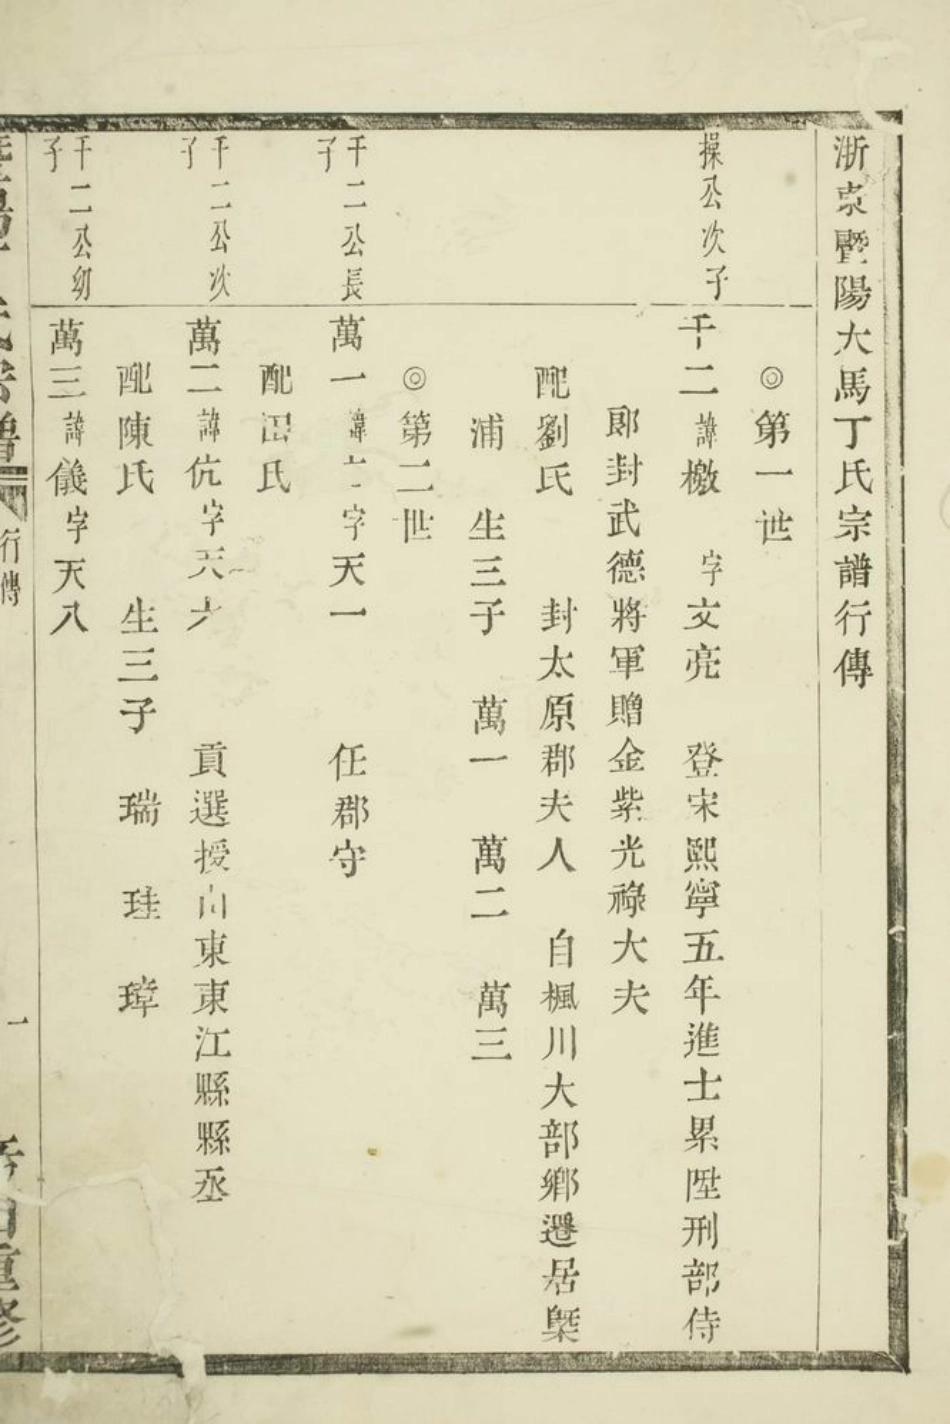 浙東曁陽大馬丁氏宗譜行傳
◎第一世
操公次子
千二諱檄 字文亮 登宋熙寧五年進士累陞刑部侍
郞封武德將軍贈金紫光祿大夫
配劉氏 封太原郡夫人 自楓川大部鄕遷居槩
浦 生三子 萬一 萬二 萬三
◎第二世
千二公長子
萬一諱 字天一 任郡守
配 氏
千二公次子
萬二諱伉字天六 貢選授山東東江縣縣丞
配陳氏 生三子 瑞 珪 璋
千二公幼子
萬三諱儀字天八
行傳
一
重修